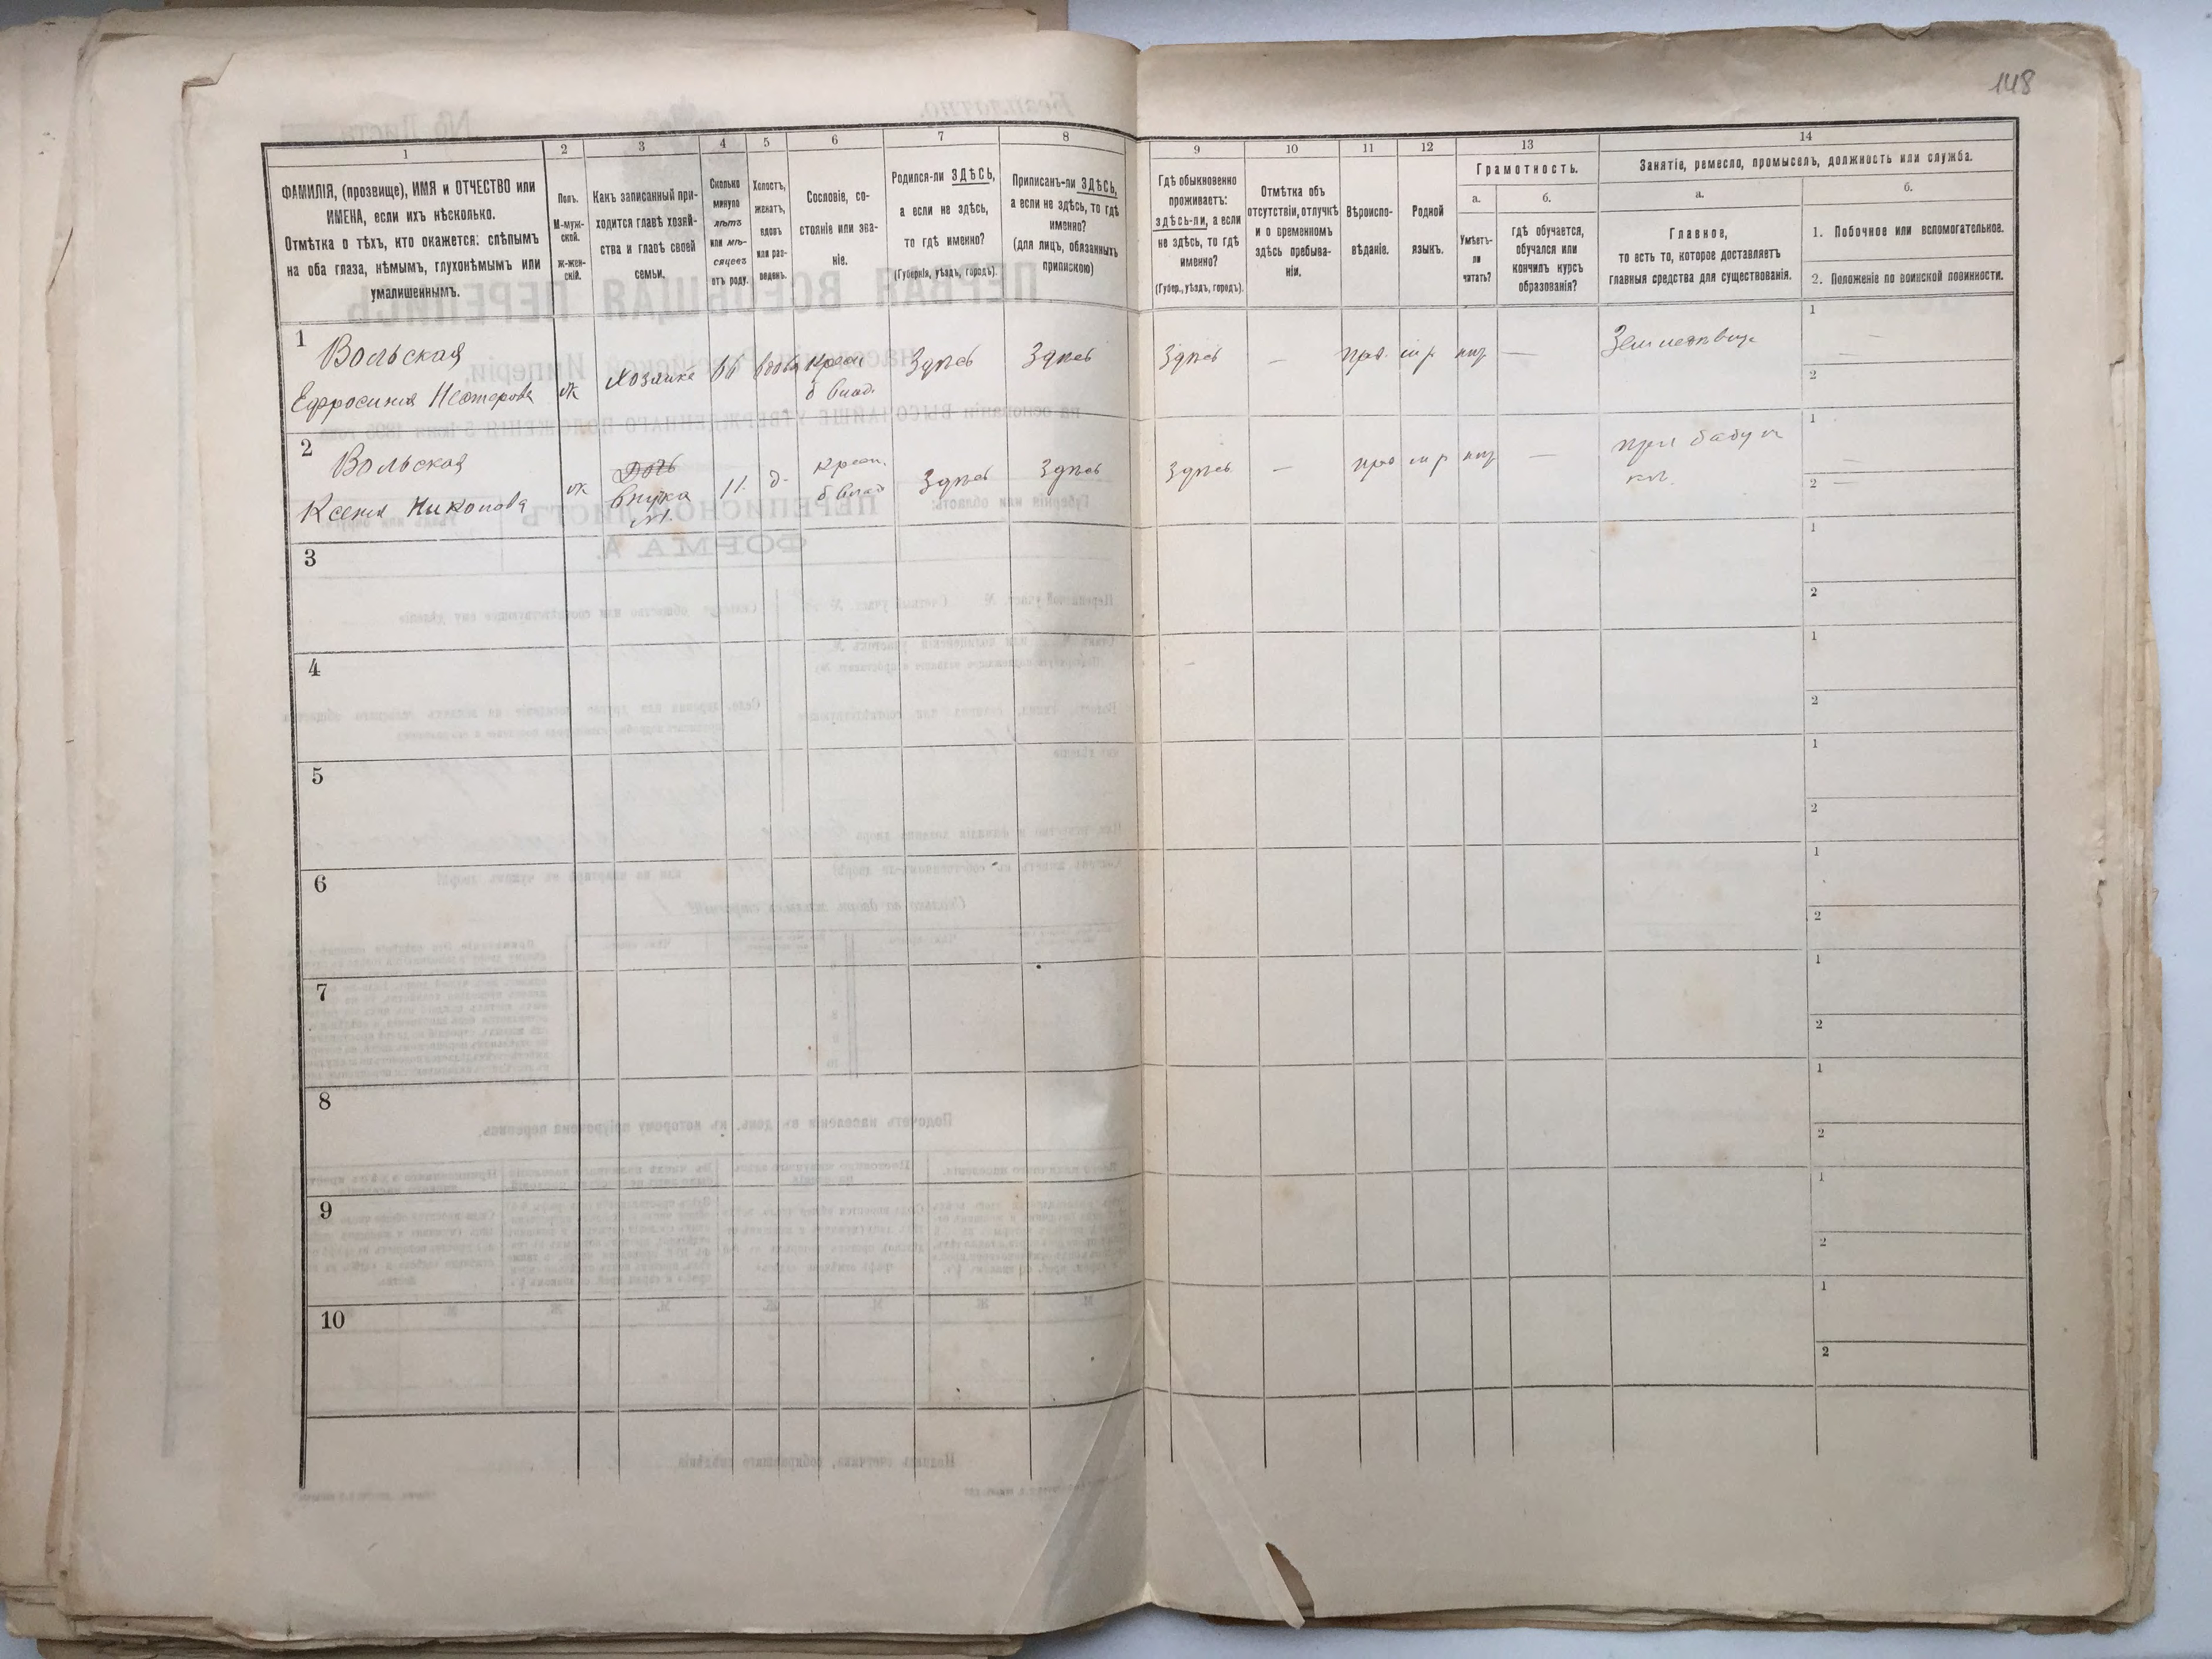 148
1
2
3
4
5
6
7
8
9
10
11
12
13
14
ФАМИЛІЯ, (прозвище), ИМЯ и ОТЧЕСТВО или
ИМЕНА, если ихъ нѣсколько.
Отмѣтка о тѣхъ, кто окажется: слѣпымъ
на оба глаза, нѣмымъ, глухонѣмымъ или
умалишеннымъ.
Полъ.
М-муж-
ской.
ж-жен-
скій.
Какъ записанный при-
ходится главѣ хозяй-
ства и главѣ своей
семьи.
Сколько
минуло
лѣтъ
или мѣ-
сяцевъ
отъ роду.
Холостъ,
женатъ,
вдовъ
или раз-
веденъ.
Сословіе, со-
стояніе или зва-
ніе.
Родился-ли ЗДѢСЬ,
а если не здѣсь,
то гдѣ именно?
(Губернія, уѣздъ, городъ).
Приписанъ-ли ЗДѢСЬ,
а если не здѣсь, то гдѣ
именно?
(для лицъ, обязанныхъ
припискою)
Гдѣ обыкновенно
проживаетъ:
здѣсь-ли, а если
не здѣсь, то гдѣ
именно?
(Губер., уѣздъ, городъ).
Отмѣтка объ
отсутствіи, отлучкѣ
и о временномъ
здѣсь пребыва-
ніи.
Вѣроиспо-
вѣданіе.
Родной
языкъ.
Грамотность.
а.
Умѣетъ-
ли
читать?
б.
гдѣ обучается,
обучался или
кончилъ курсъ
образованія?
Занятіе, ремесло, промыселъ, должность или служба.
а.
Главное,
то есть то, которое доставляетъ
главныя средства для существованія.
б.
1. Побочное или вспомогательное.
2. Положеніе по воинской повинности.
1
Вольская
Ефросинія Несторова
ж
Хозяйка
вдова
крест.
б влад.
Здѣсь
Здѣсь
Здѣсь
—
прав.
м р
—
1
—
2
2
Вольская
Ксенія Никонова
ж
Дочь
внука
11
д.
крест.
б влад
Здѣсь
Здѣсь
Здѣсь
—
прав
м р
—
при бабуш
кѣ.
1
—
2 —
3
1
2
4
1
2
5
1
2
6
1
2
7
1
2
8
1
2
9
1
2
10
1
2